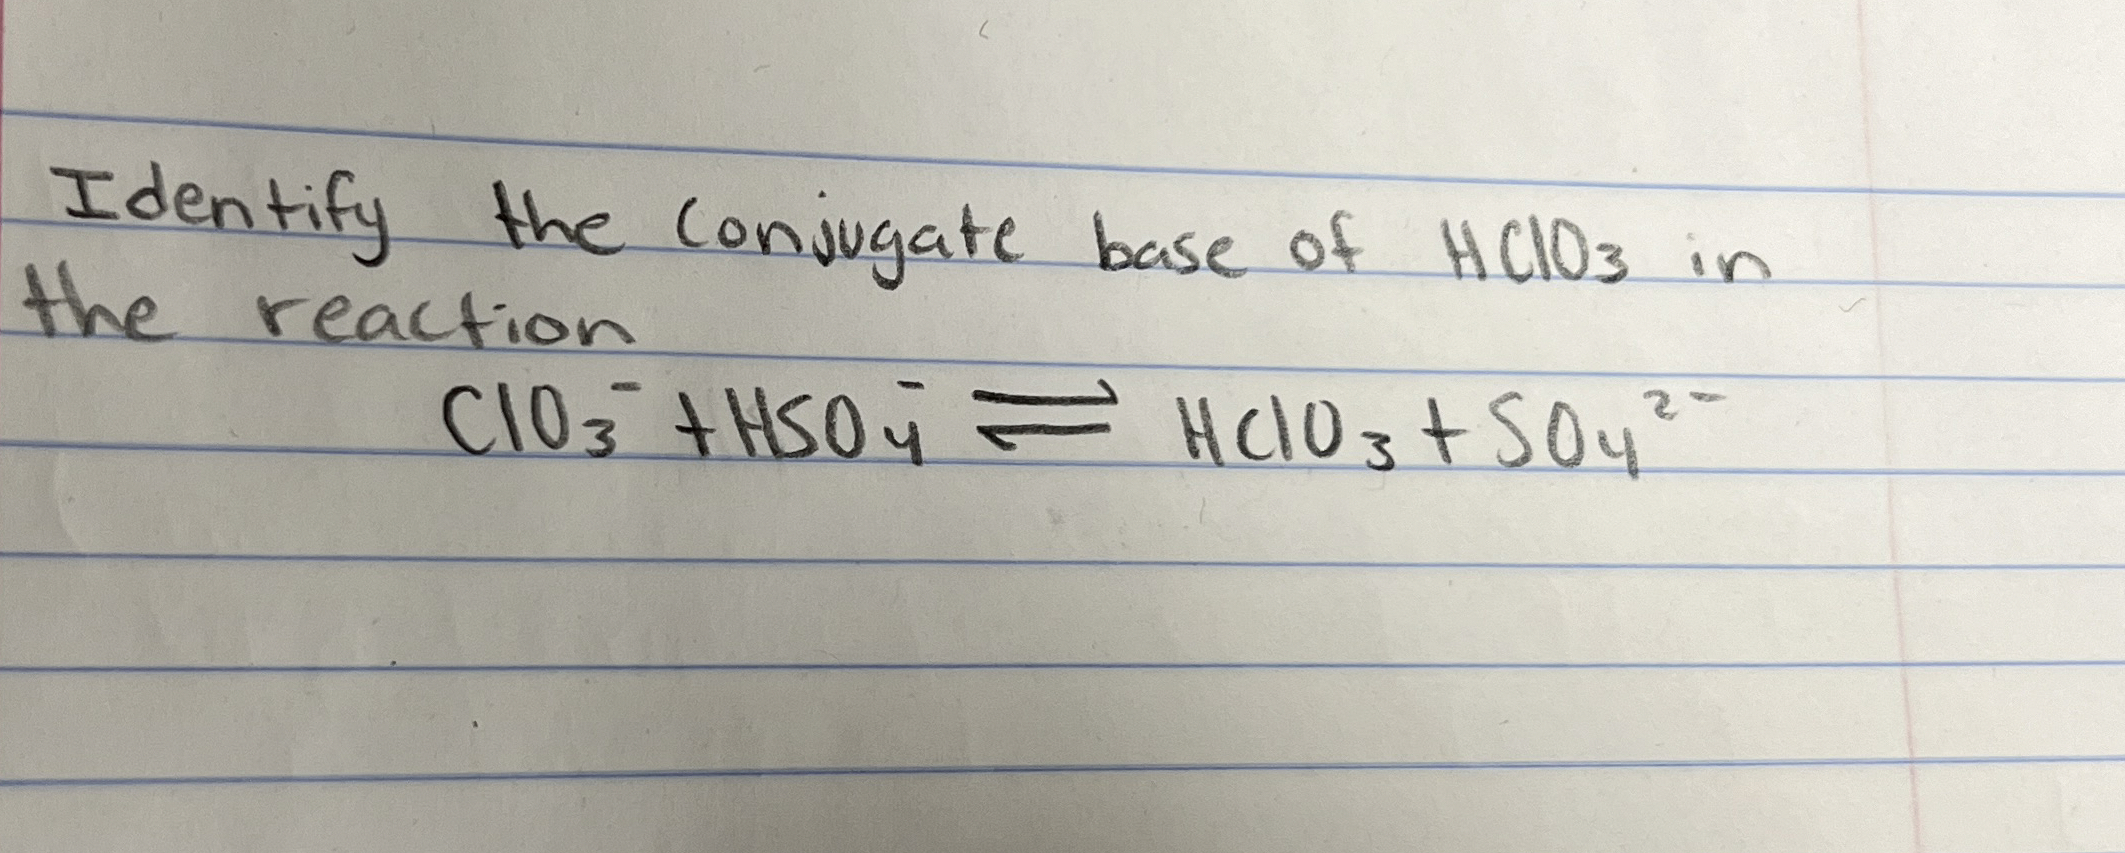 Identify the conjugate base of HClO3 in
the reaction
ClO₃⁻ + HSO₄⁻ ⇌ HClO₃ + SO₄²⁻